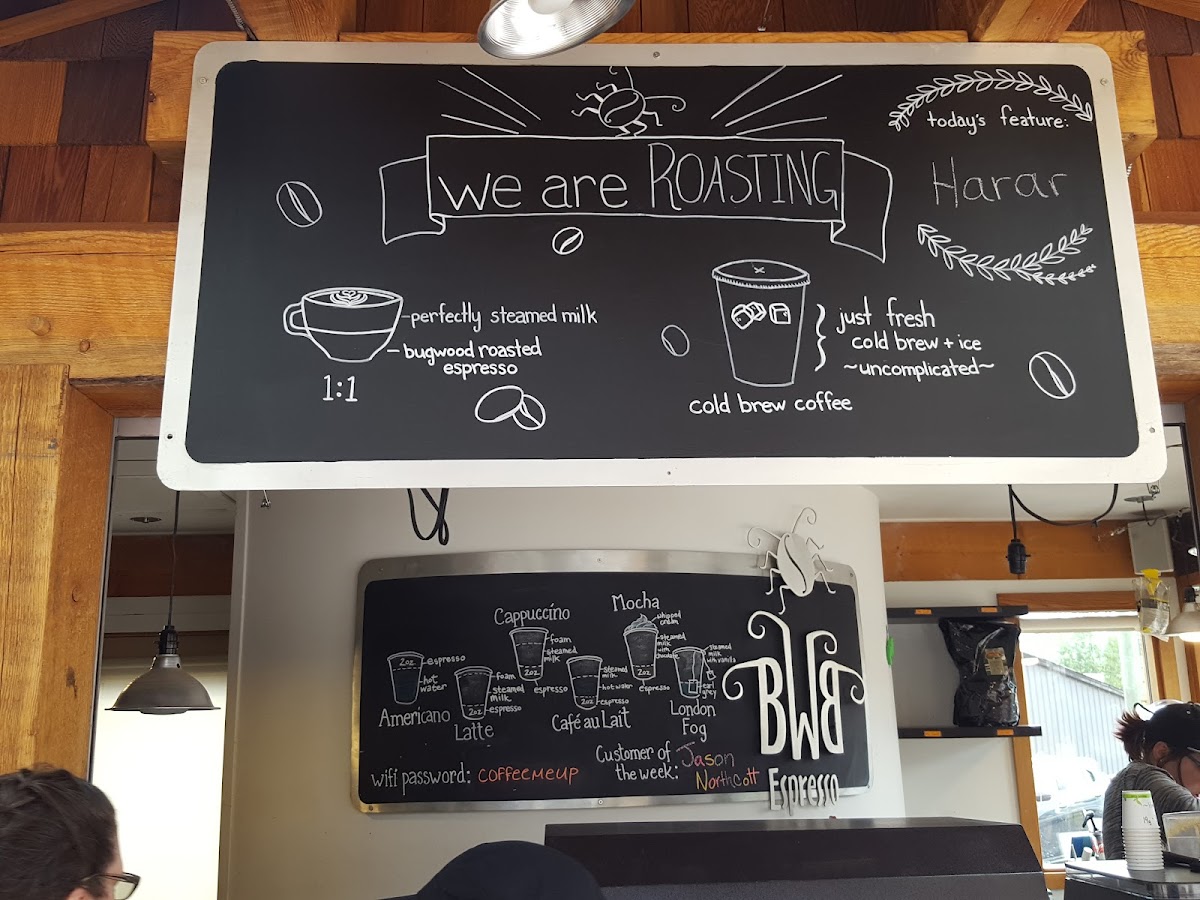 we are ROASTING
today's feature:
Harar
perfectly steamed milk
bugwood roasted
espresso
1:1
just fresh
cold brew + ice
~uncomplicated~
cold brew coffee
Cappuccino
foam
steamed
milk
2oz
espresso
Mocha
whipped
cream
steamed
milk
with
chocolate
2oz
espresso
2oz
espresso
hot
water
Americano
foam
steamed
milk
2oz
espresso
Latte
steamed
milk
hot water
2oz
espresso
Café au Lait
steamed
milk
with vanilla
earl
grey
London
Fog
wifi password: COFFEEMEUP
Customer of
the week:
Jason
Northcott
BWB
Espresso